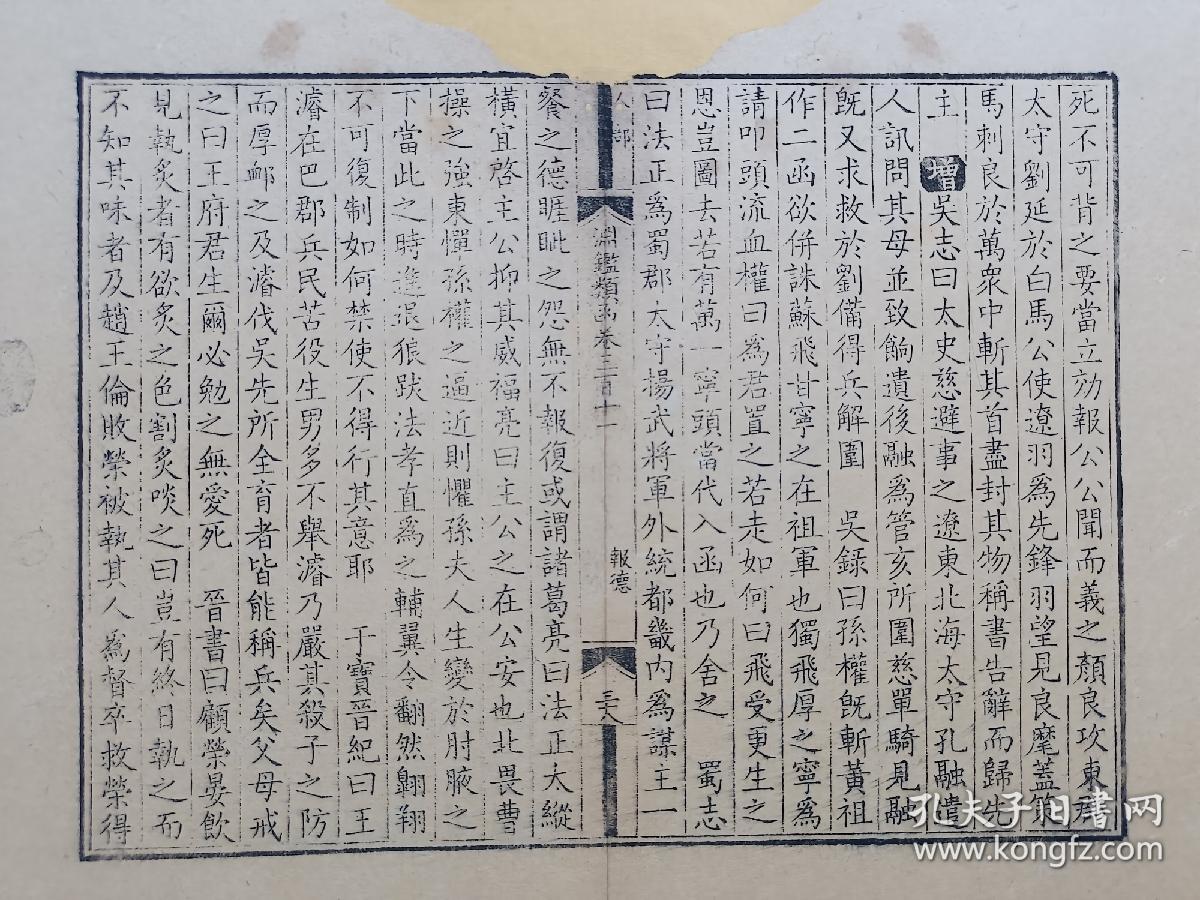 死不可背之要當立効報公公聞而義之顏良攻東郡
太守劉延於白馬公使遼羽為先鋒羽望見良麾蓋策
馬刺良於萬衆中斬其首盡封其物稱書告辭而歸先
主 增 吳志曰太史慈避事之遼東北海太守孔融遣
人訊問其母並致餉遺後融為管亥所圍慈單騎見融
既又求救於劉備得兵解圍 吳錄曰孫權既斬黃祖
作二函欲併誅蘇飛甘寧之在祖軍也獨飛厚之寧為
請叩頭流血權曰為君置之若走如何曰飛受更生之
恩豈圖去若有萬一寧頭當代入函也乃舍之 蜀志
曰法正為蜀郡太守揚武將軍外統都畿內為謀主一
人部
淵鑑類函卷三百十一
報德
三六
餐之德睚眦之怨無不報復或謂諸葛亮曰法正太縱
橫宜啓主公抑其威福亮曰主公之在公安也北畏曹
操之強東憚孫權之逼近則懼孫夫人生變於肘腋之
下當此之時進退狼跋法孝直為之輔翼令翻然翺翔
不可復制如何禁使不得行其意耶 于寶晉紀曰王
濬在巴郡兵民苦役生男多不舉濬乃嚴其殺子之防
而厚卹之及濬伐吳先所全育者皆能稱兵矣父母戒
之曰王府君生爾必勉之無愛死 晉書曰顧榮宴飲
見執炙者有欲炙之色割炙啖之曰豈有終日執之而
不知其味者及趙王倫敗榮被執其人為督卒救榮得
孔夫子旧書网
www.kongfz.com